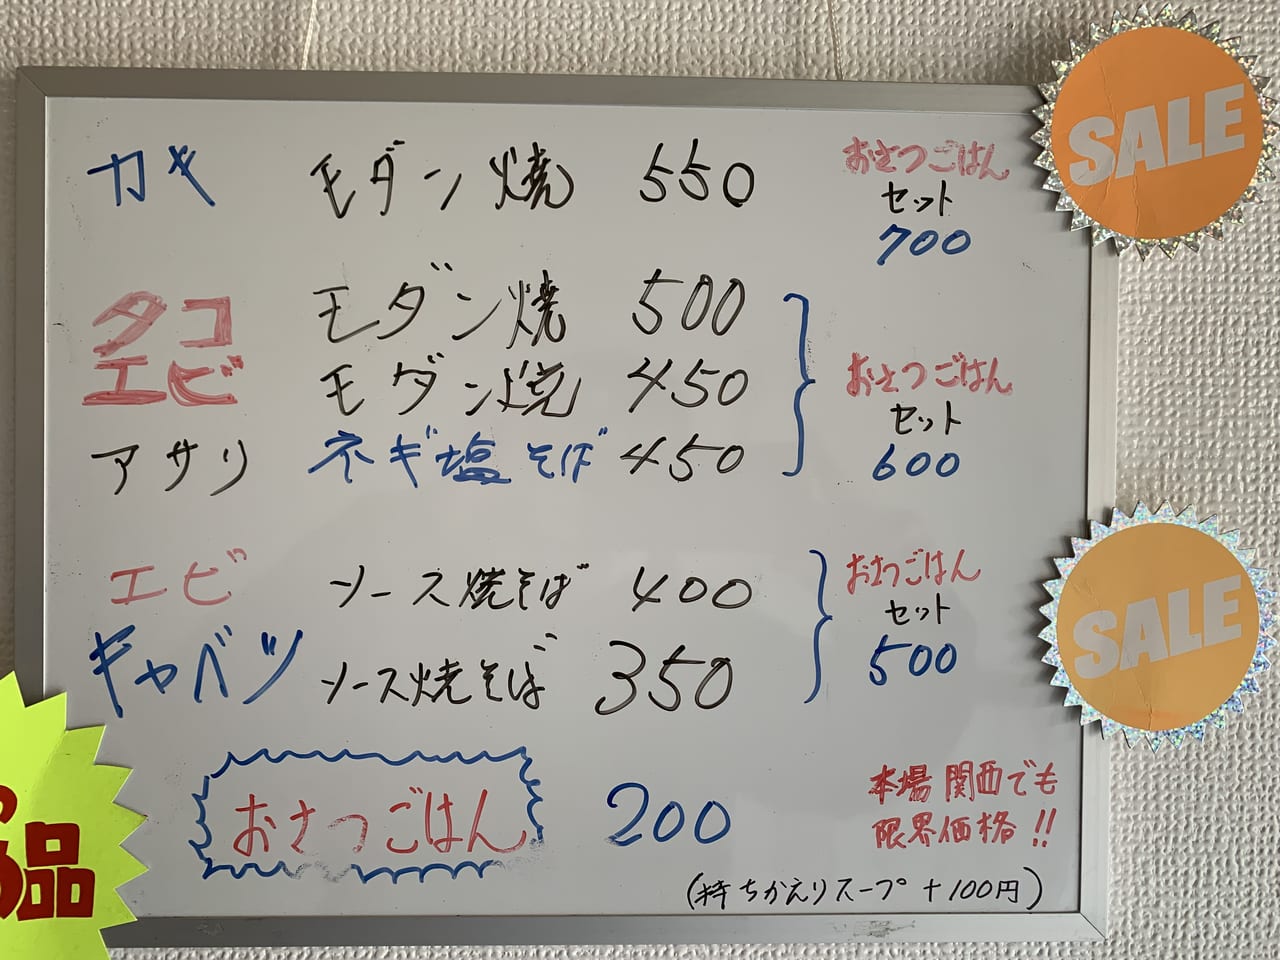 カキ モダン焼 550
おさつごはん
セット
700
タコ モダン焼 500
エビ モダン焼 450
アサリ ネギ塩そば 450
おさつごはん
セット
600
エビ ソース焼そば 400
キャベツ ソース焼そば 350
おさつごはん
セット
500
おさつごはん 200
本場関西でも
限界価格!!
(持ちかえりスープ+100円)
SALE
SALE
品